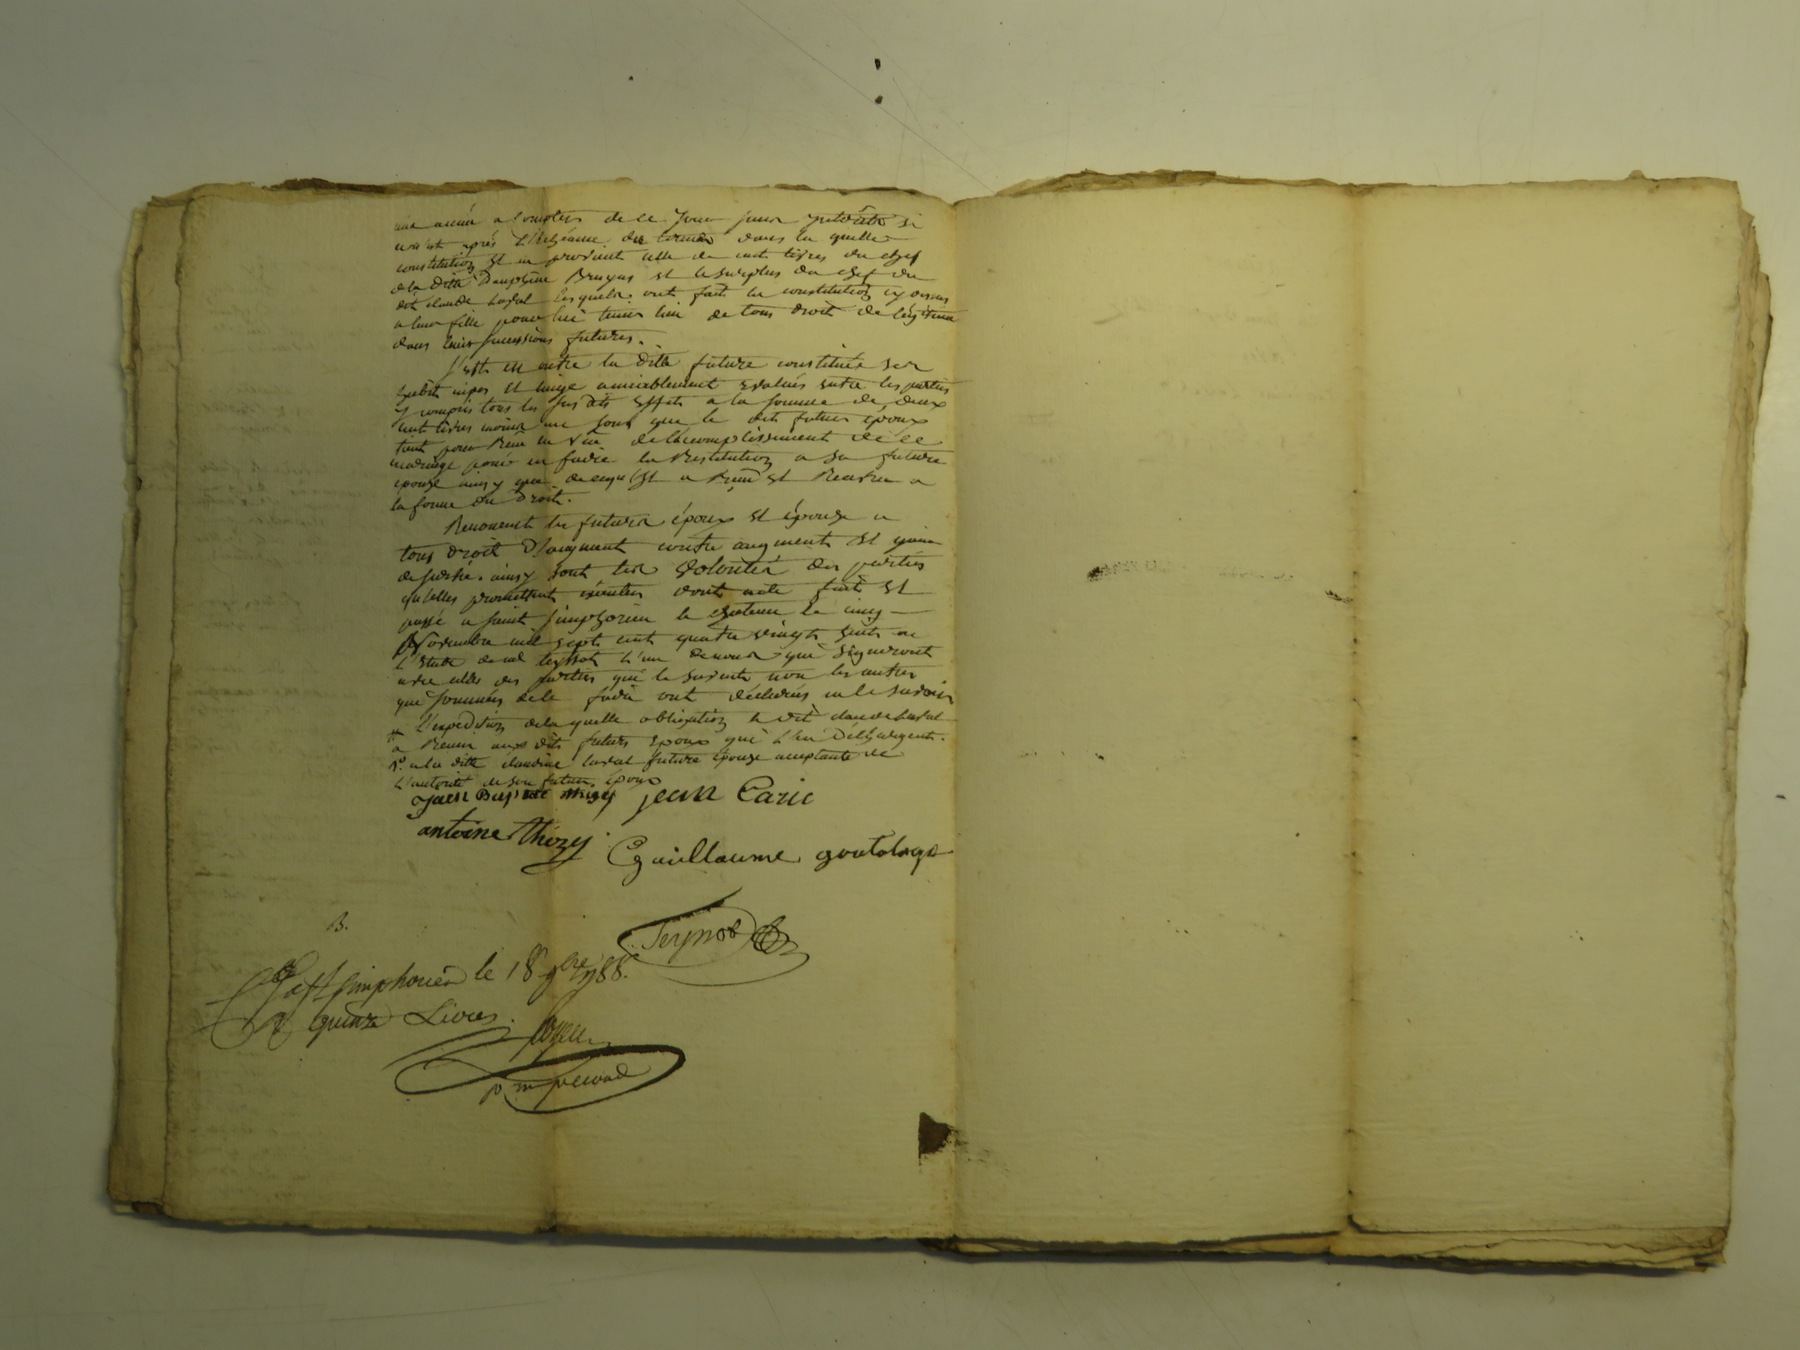 une année a Compter de ce jour sans interêts si
ce n'est après L'échéance des termes dans la quelle
constitution Il en provient celle de cent livres du chef
de la ditte Dauphine Bruyas et le surplus du chef du
dit claude lesquels ont fait la constitution cy dessus
a leur fille pour lui tenir lieu de tous droit de légitime
dans leurs sucessions futures.
S'est en outre la ditte future constituée ses
habits nipes et linge amiablement evalués entre les parties
y compris tous les sus dits effets a la somme de deux
cent livres moins un sous que le dit futur époux
tient pour Reçu en vue de l'acomplissement de ce
mariage pour en faire la Restitution a sa future
epouze ainsy que de ce qu'il a Reçu et Recevra a
la forme du droit.
Renoncent les futurs époux et épouze a
tous droit D'augment contre augment et gain
de survie. ainsy sont les volontés des parties
qu'elles promettent exécuter dont acte fait et
passé a saint simphorien le chateau le cinq
Novembre mil sept cent quatre vingt huit en
L'étude de L'un de nous qui signeront
avec celles des parties qui le savent non les autres
que sommées de le faire ont déclarés ne le savoir
L'expédition de la quelle obligation le dit claude
a Remis aux dits futurs epoux qui L'en Déchargent.
a la ditte claudine future épouze acceptante de
L'autorité de son futur époux
Jean Baptiste jean Caric
antoine thizy
Guillaume goutelage
B.
a St simphorien le 18 9bre 1788.
quinze Livres.